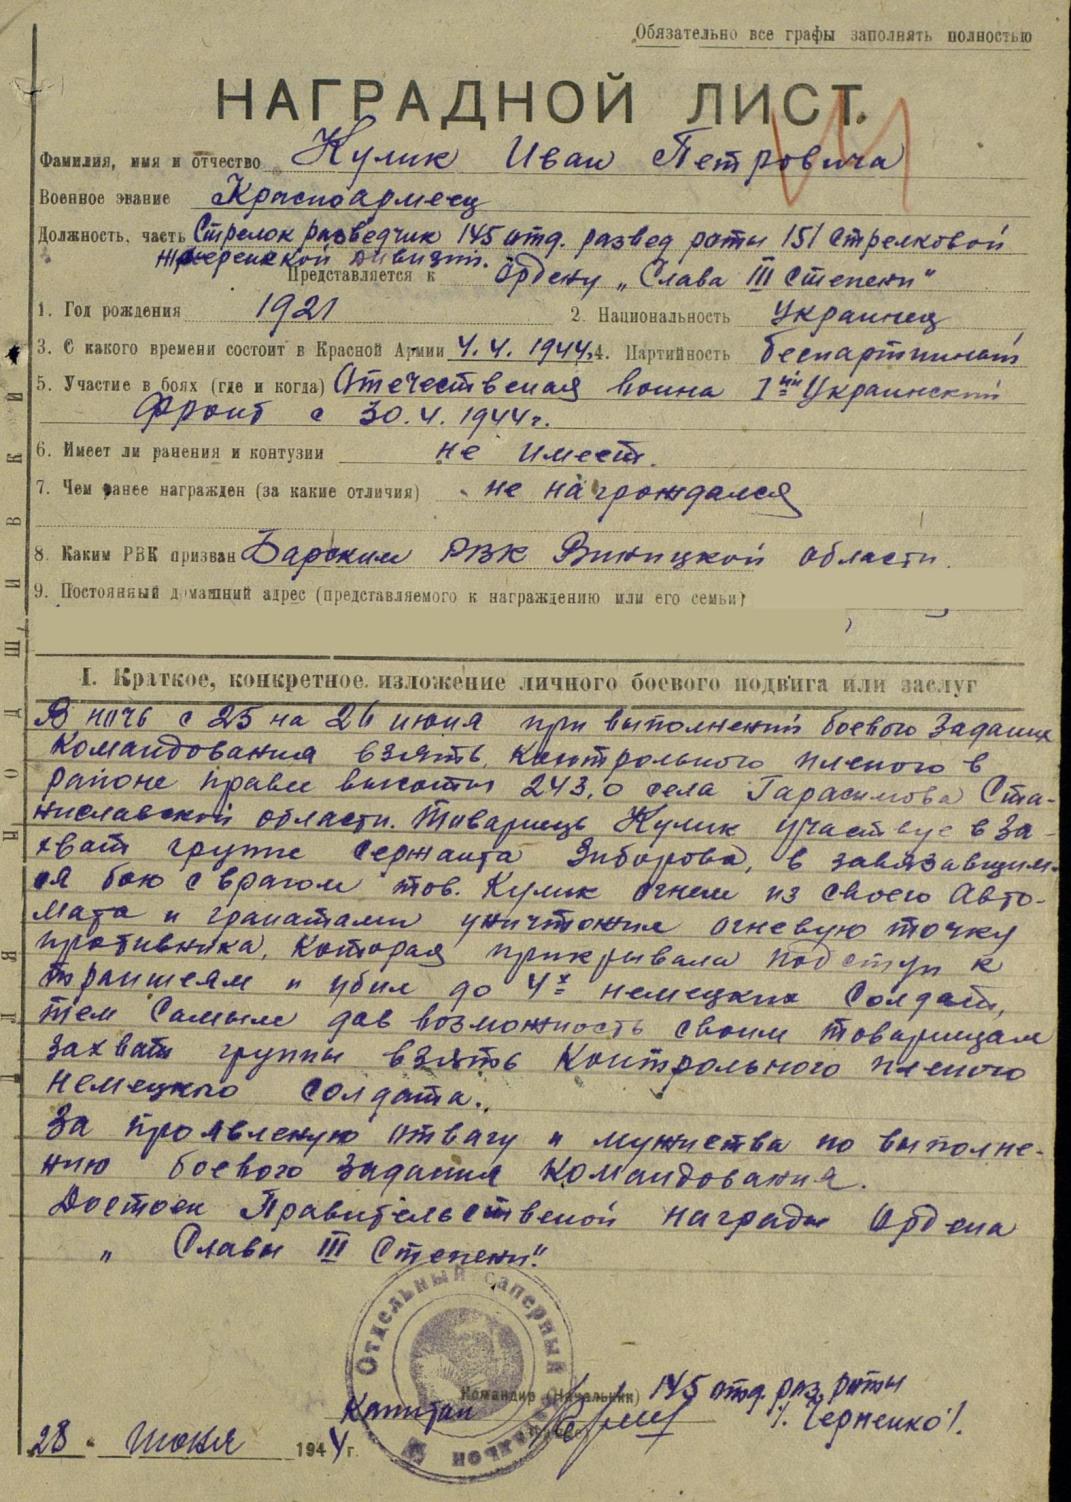 Обязательно все графы заполнять полностью
НАГРАДНОЙ ЛИСТ.
Фамилия, имя и отчество Кулик Иван Петровича
Военное звание Красноармеец
Должность, часть Стрелок разведчик 145 отд. развед роты 151 стрелковой
дивизии.
Представляется к ордену „Слава III степени"
1. Год рождения 1921 2. Национальность украинец
3. С какого времени состоит в Красной Армии 4.4.1944. 4. Партийность беспартийный
5. Участие в боях (где и когда) Отечественая воина 1ый Украинский
Фронт с 30.4.1944г.
6. Имеет ли ранения и контузии не имеет.
7. Чем ранее награжден (за какие отличия) не награждался
8. Каким РВК призван Барским РВК Виницкой области.
9. Постоянный домашний адрес (представляемого к награждению или его семьи)
I. Краткое, конкретное изложение личного боевого подвига или заслуг
В ночь с 25 на 26 июня при выполнений боевого задания
командования взять контрольного пленого в
районе правее высоты 243,0 села Гарасимова Ста-
ниславской области. Товарищь Кулик участвуе в за-
хват группе сержанта Зиборова, в завязавшим-
ся бою с врагом тов. Кулик огнем из своего авто-
мата и гранатами уничтожил огневую точку
противника, которая прикрывала подступ к
траншеям и убил до 4х немецких солдат,
тем самым дав возможность своим товарищам
захват группы взять контрольного пленого
немецкого солдата.
За проявленую отвагу и мужества по выполне-
нию боевого задания командования.
Достоен Правительственой награды Ордена
„Славы III степени".
Отдельный саперный
Командир (Начальник) 145 отд. раз. роты
Капитан /Черненко/.
28 июня 1944 г.
ДЛЯ ПОДШИВКИ